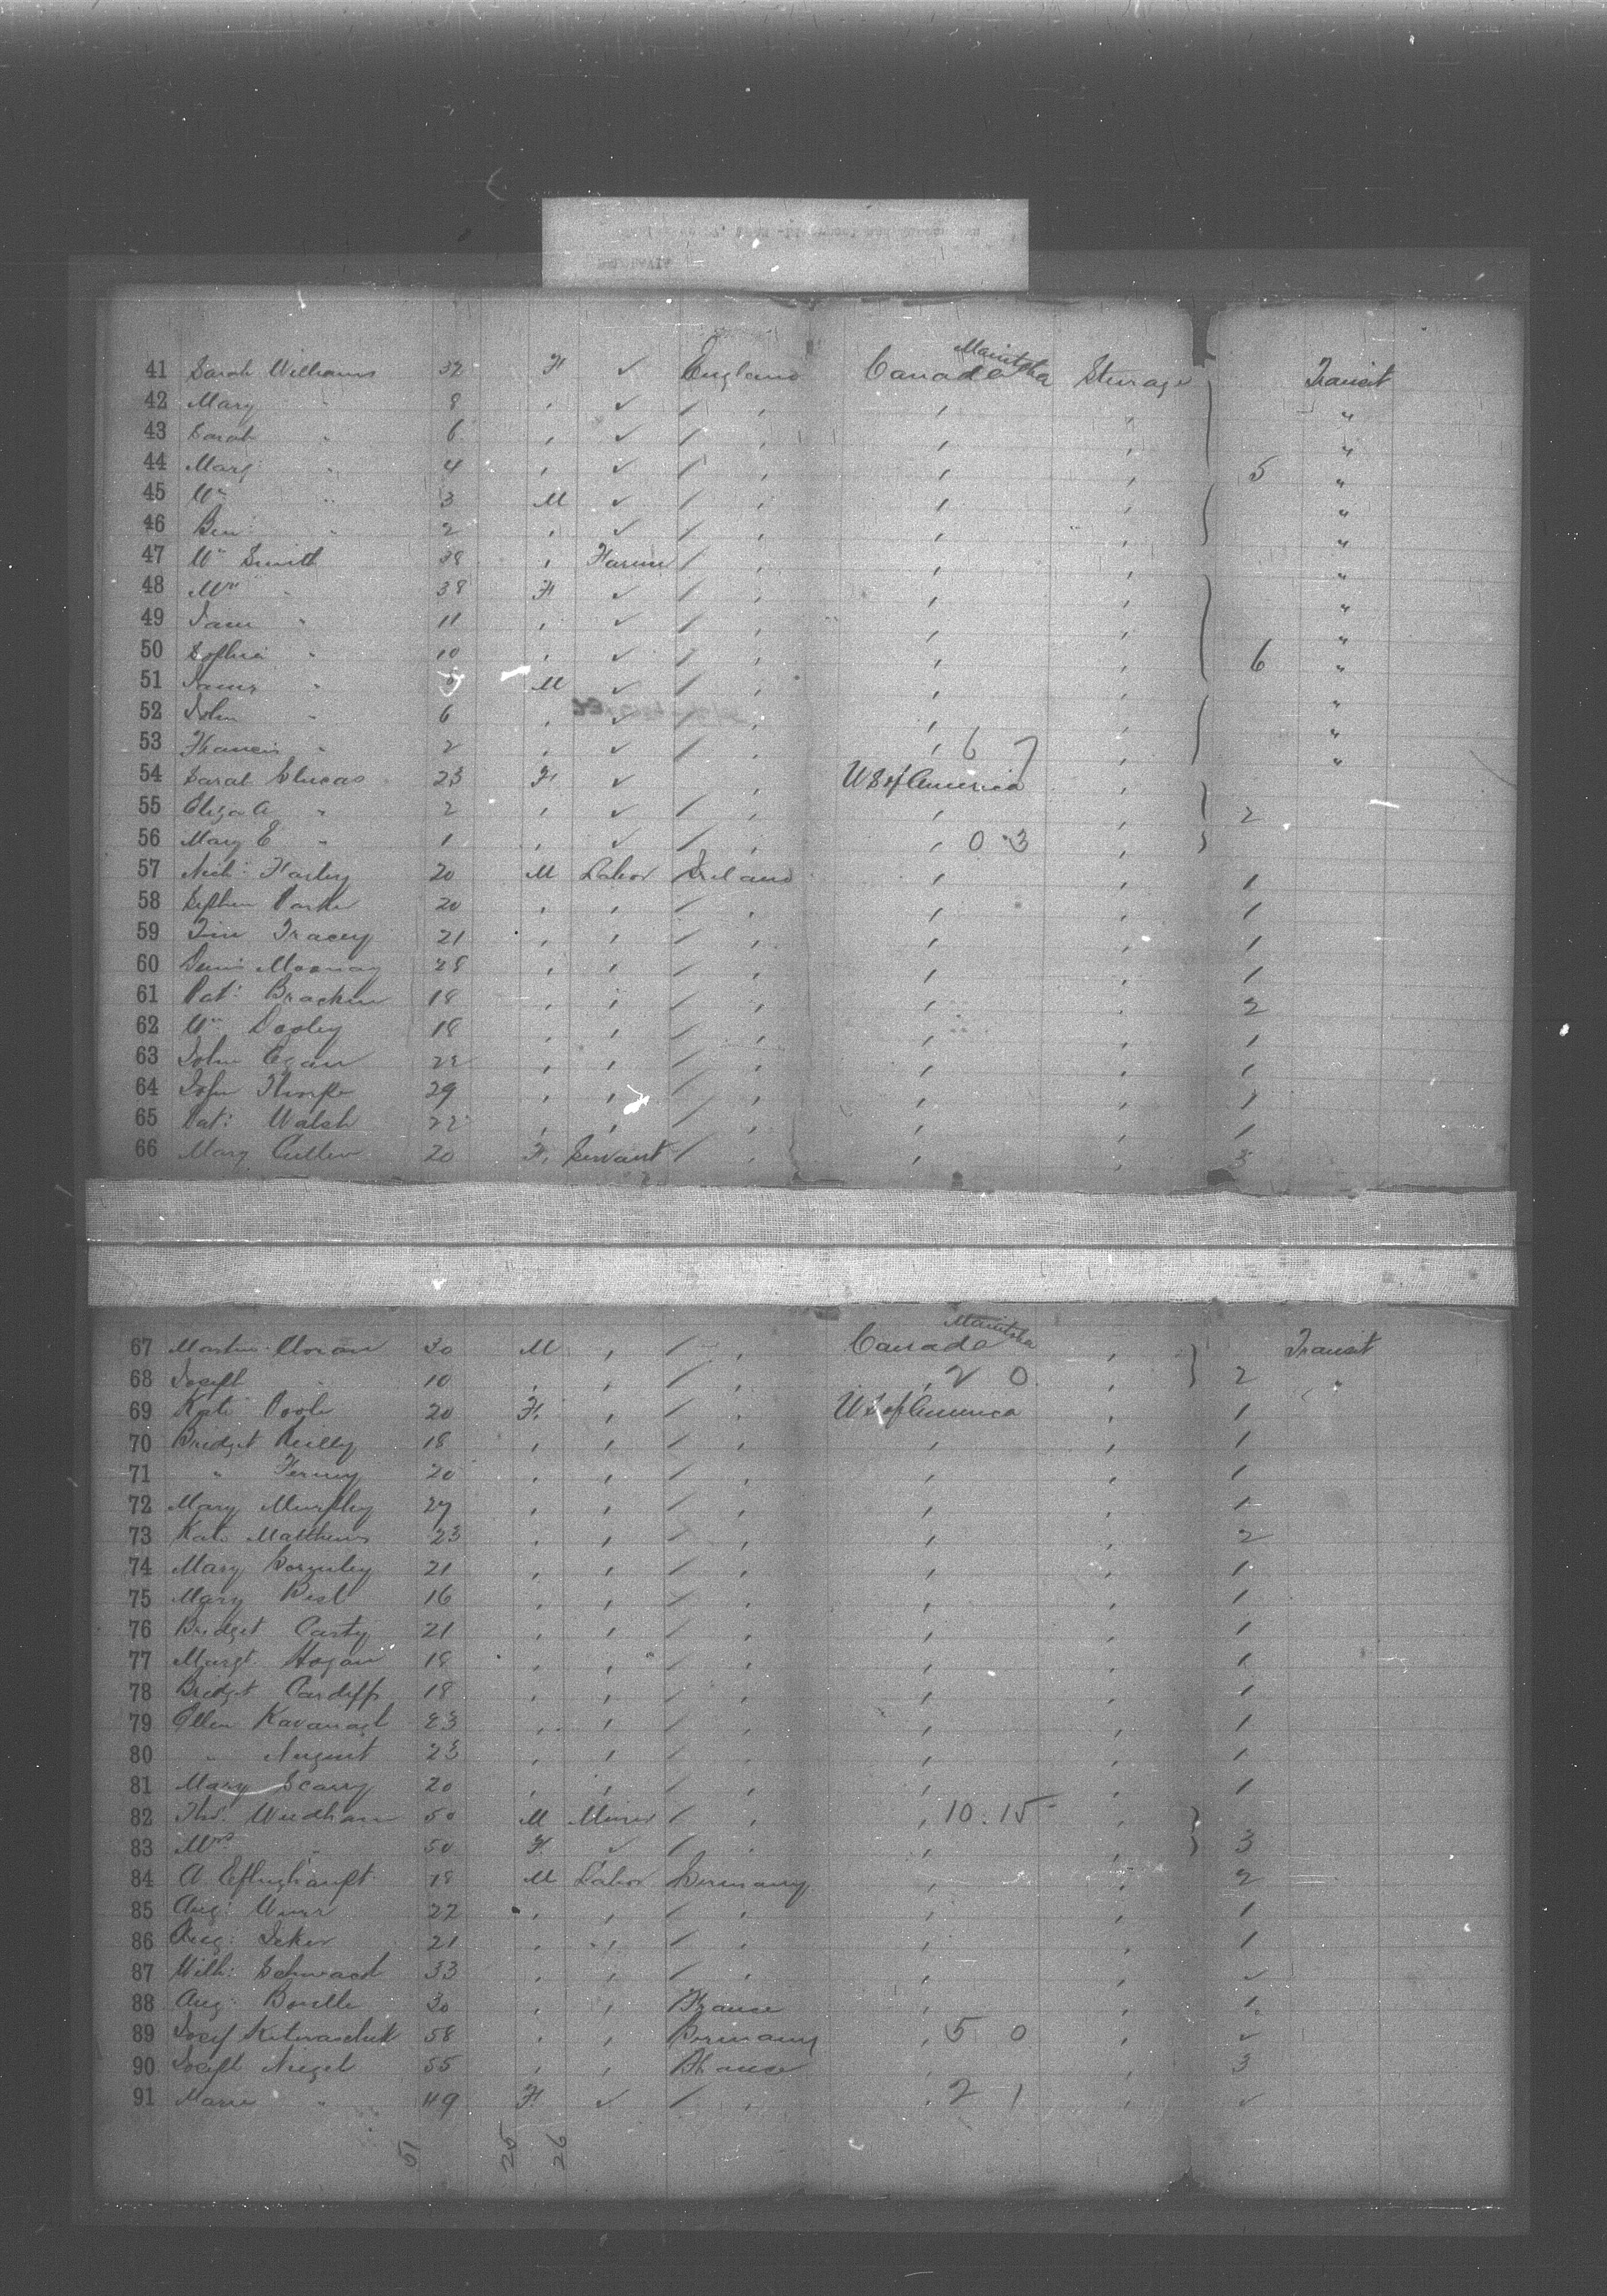 BELGRAVIA
Manitoba
41 Sarah Williams 32 F ✓ England Canada Steerage Transit
42 Mary " 8 , ✓ / , , , "
43 Sarah " 6 , ✓ / , , , "
44 Marg " 4 , ✓ / , , , 5 "
45 Wm " 3 M ✓ / , , , "
46 Ben " 2 , ✓ / , , , "
47 Wm Smith 38 , Farmer / , , , "
48 Mrs " 38 F ✓ / , , , "
49 Jane " 11 , ✓ / , , , "
50 Sophia " 10 , ✓ / , , , 6 "
51 James " M ✓ / , , , "
52 John " 6 , ✓ / , , , "
53 Francis " 2 , ✓ / , , 6 7 , "
54 Sarah 23 F ✓ , U S of America ,
55 Eliza A " 2 , ✓ / , , , 2
56 Mary E " 1 , ✓ / , , 0 3 ,
57 Nich: Farley 20 M Labor Ireland , , 1
58 Stephen Parker 20 , , / , , , 1
59 Tim Tracey 21 , , / , , , 1
60 Denis Mooney 28 , , / , , , 1
61 Pat: Bracken 18 , , / , , , 2
62 Wm Dooley 18 , , / , , , 1
63 John Egan 22 , , / , , , 1
64 John Thorpe 29 , , / , , , 1
65 Pat: Walsh 22 , , / , , , 1
66 Mary Cullen 20 F. Servant / , , ,
Manitoba
67 Martin Moran 30 M , / , Canada , Transit
68 Joseph " 10 , , / , , 2 0 , 2 "
69 Kate Poole 20 F. , / , U S of America , 1
70 Bridget Reilly 18 , , / , , , 1
71 " Ferny 20 , , / , , , 1
72 Mary Murphy 27 , , / , , , 1
73 Kate Matthews 23 , , / , , , 2
74 Mary Gormley 21 , , / , , , 1
75 Mary 16 , , / , , , 1
76 Bridget Carty 21 , , / , , , 1
77 Margt. Hogan 18 , , / , , , 1
78 Bridget Cardiff 18 , , / , , , 1
79 Ellen Kavanagh 23 , , / , , , 1
80 " Nugent 23 , , / , , , 1
81 Mary Scarry 20 , , / , , , 1
82 Thos. Weedham 50 M Miner / , , 10.15 ,
83 Mrs " 50 F. ✓ / , , , 3
84 A. 18 M Labor Germany , , 2
85 Aug: 22 , , / , , , 1
86 Aug: 21 , , / , , , 1
87 Wilh: 33 , , / , , , ✓
88 Aug: Borelle 30 , , France , , 1.
89 Josef 58 , , Germany , 5 0 , ✓
90 Joseph Niegel 55 , , France , , 3
91 Marie " 49 F. ✓ / , , 2 1 , ✓
51 25 26